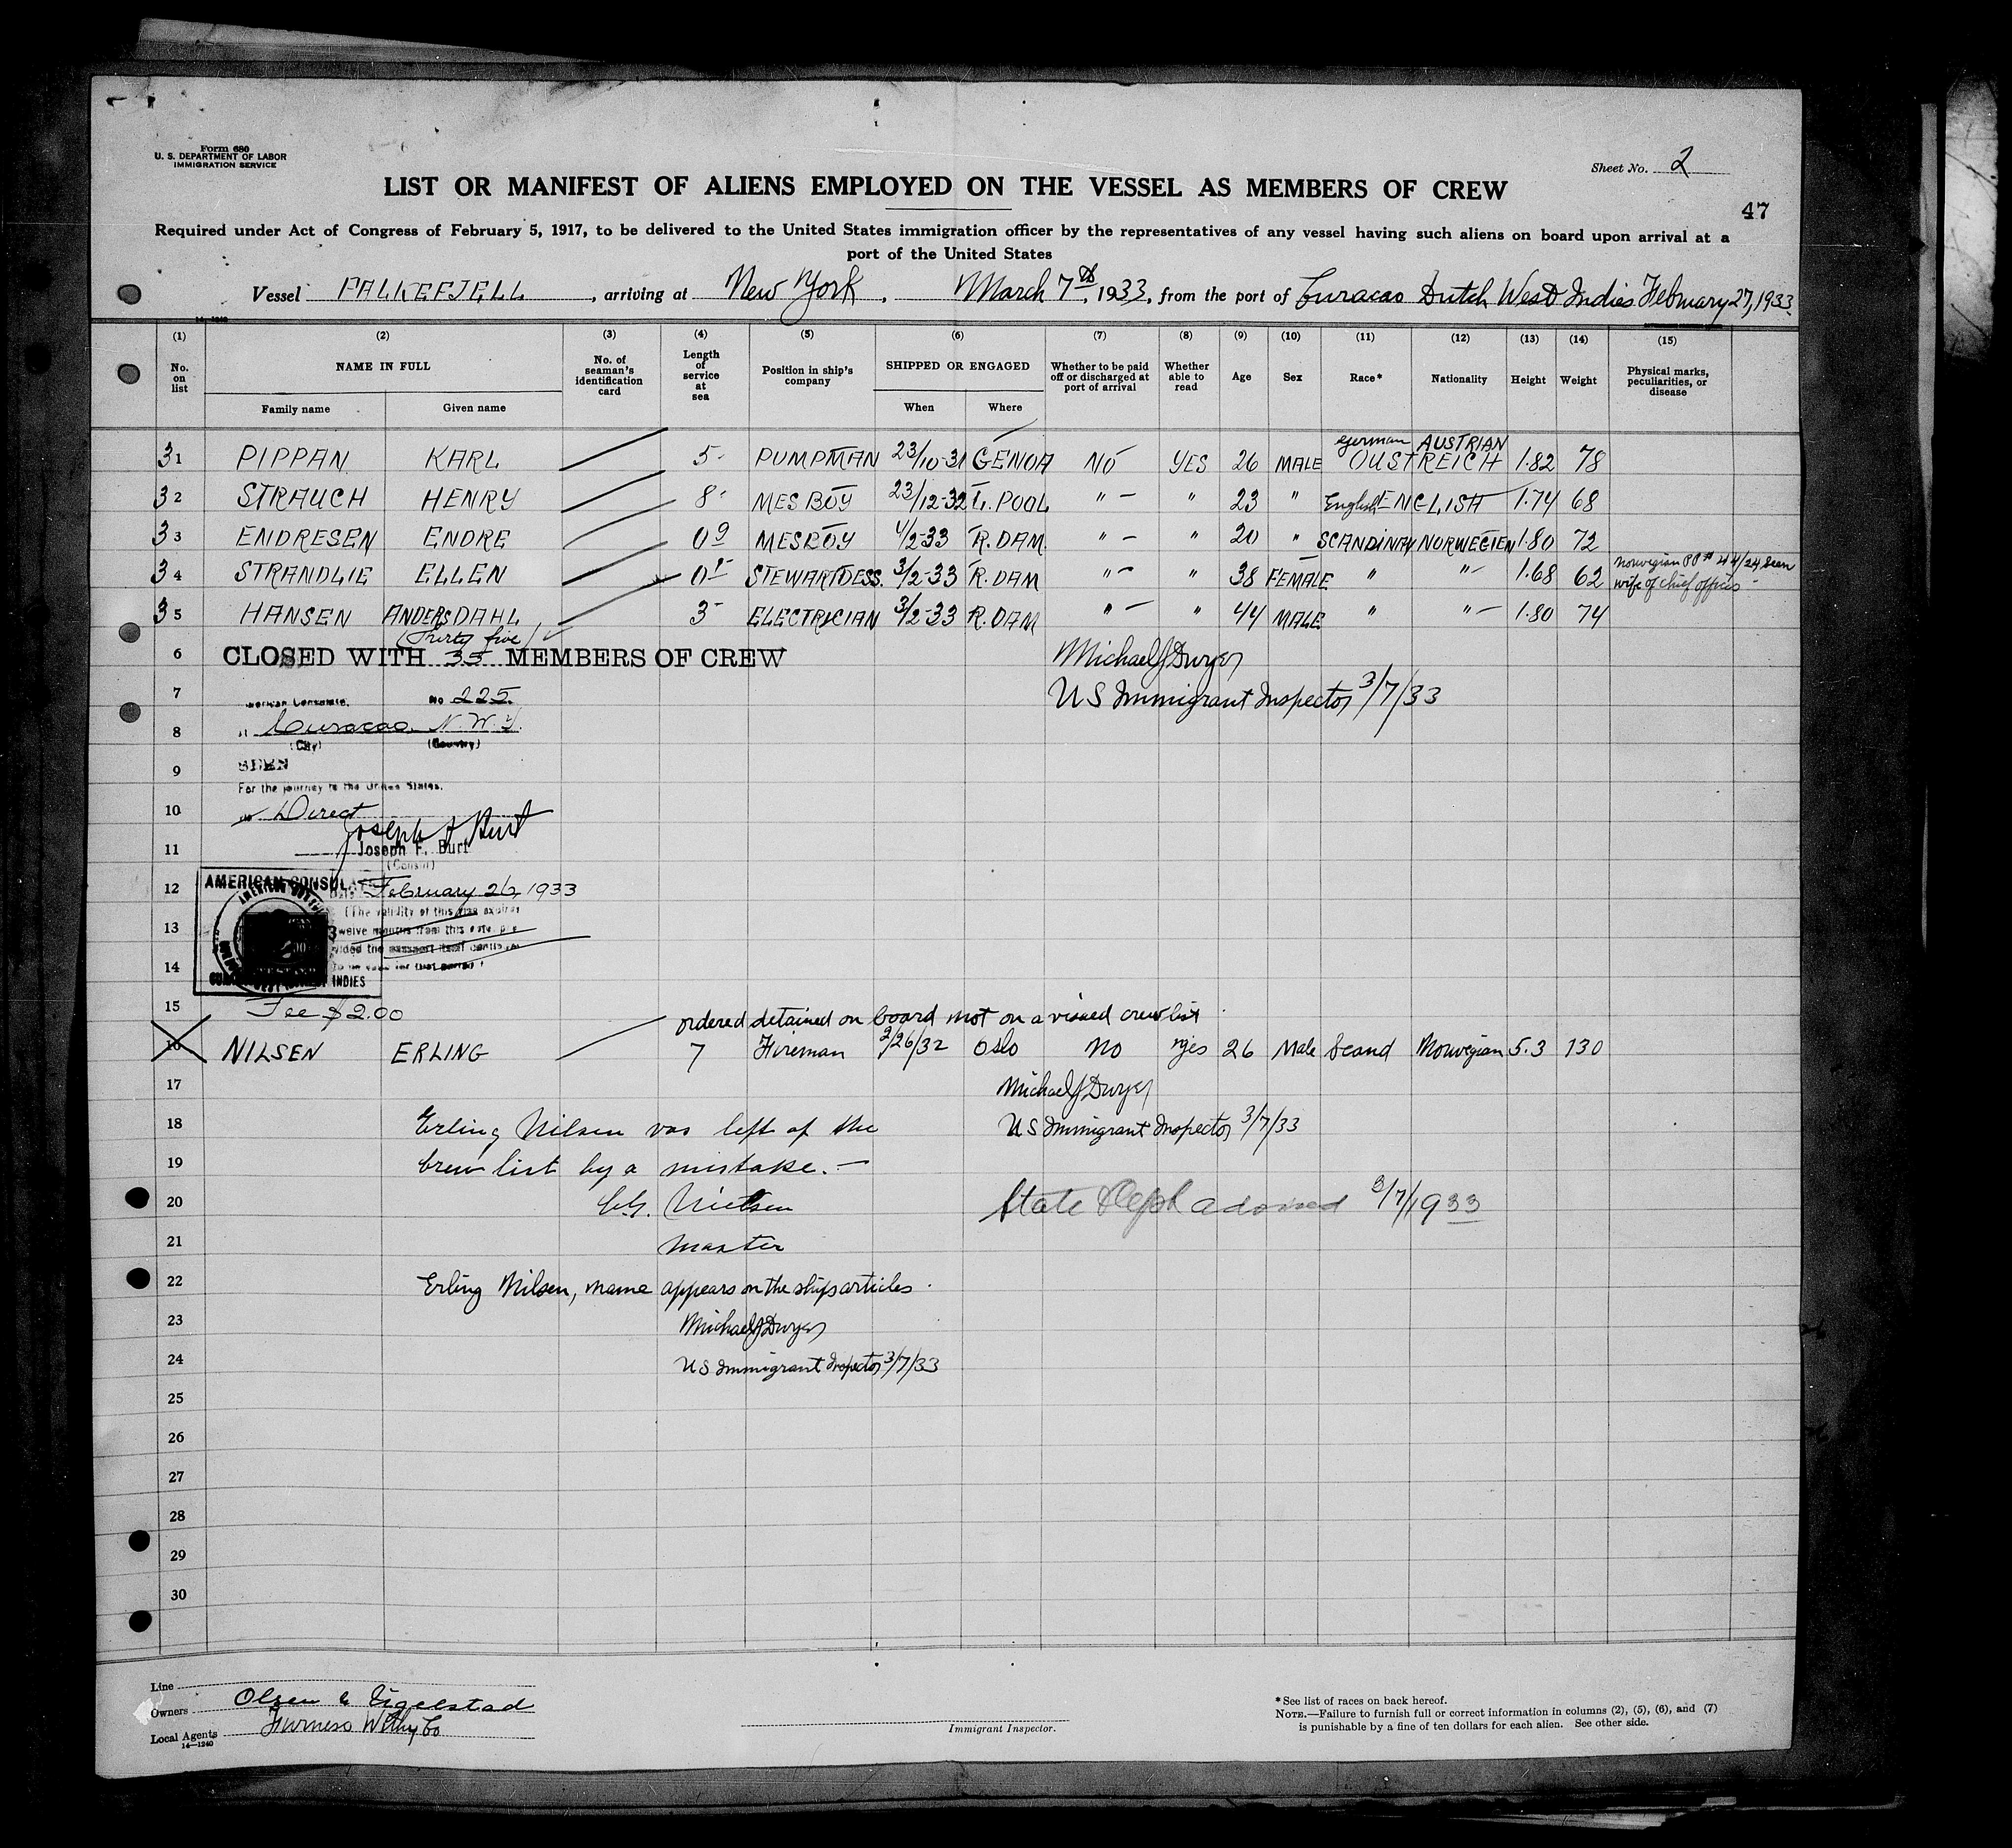 Form 680
U. S. DEPARTMENT OF LABOR
IMMIGRATION SERVICE
Sheet No. 2
LIST OR MANIFEST OF ALIENS EMPLOYED ON THE VESSEL AS MEMBERS OF CREW
47
Required under Act of Congress of February 5, 1917, to be delivered to the United States immigration officer by the representatives of any vessel having such aliens on board upon arrival at a
port of the United States
Vessel FALKEFJELL, arriving at New York, March 7th, 1933, from the port of Curacao Dutch West Indies February 27, 1933.
(1) (2) (3) (4) (5) (6) (7) (8) (9) (10) (11) (12) (13) (14) (15)
No. on list NAME IN FULL No. of seaman's identification card Length of service at sea Position in ship's company SHIPPED OR ENGAGED Whether to be paid off or discharged at port of arrival Whether able to read Age Sex Race* Nationality Height Weight Physical marks, peculiarities, or disease
Family name Given name When Where
German AUSTRIAN
31 PIPPAN KARL 5- PUMPMAN 23/10-31 GENOA NO YES 26 MALE OUSTREICH 1.82 78
32 STRAUCH HENRY 8- MESBOY 23/12-32 L. POOL " - " 23 " English ENGLISH 1.74 68
33 ENDRESEN ENDRE 0 9 MESBOY 4/2-33 R.DAM " - " 20 " SCANDINAV NORWEGIEN 1.80 72
Norwegian PP # 44/24 seen
34 STRANDLIE ELLEN 0 1- STEWARTDESS. 3/2-33 R.DAM " - " 38 FEMALE " " - 1.68 62 wife of chief officer
35 HANSEN ANDERS DAHL 3- ELECTRICIAN 3/2-33 R.DAM " - " 44 MALE " " - 1.80 74
(Thirty five)
6 CLOSED WITH 35 MEMBERS OF CREW Michael J Dwyer
7 American Consulate, No 225. US Immigrant Inspector 3/7/33
8 Curacao. N.W.I.
(City) (Country)
9 SEEN
For the journey to the United States.
10 Direct
Joseph F Burt
11 Joseph F. Burt
(Consul)
12 AMERICAN CONSULATE February 26, 1933
(The validity of this visa expires
13 twelve months from this date, pro
vided the passport itself continues
14 to be valid for that period)
INDIES
15 Fee $2.00
ordered detained on board not on a visaed crew list
16 NILSEN ERLING 7 Fireman 2/26/32 Oslo No Yes 26 Male Scand Norwegian 5.3 130
17 Michael J Dwyer
18 Erling Nilsen vas left of the US Immigrant Inspector 3/7/33
19 crew list by a mistake. —
20 Nielsen State Dept advised 3/7/1933
21 Master
22 Erling Nilsen, name appears on the ships articles.
23 Michael J Dwyer
24 US Immigrant Inspector 3/7/33
25
26
27
28
29
30
Line
Owners Olsen & Ugelstad
Local Agents Furness Withy Co
14—1240
Immigrant Inspector.
* See list of races on back hereof.
NOTE.—Failure to furnish full or correct information in columns (2), (5), (6), and (7)
is punishable by a fine of ten dollars for each alien. See other side.